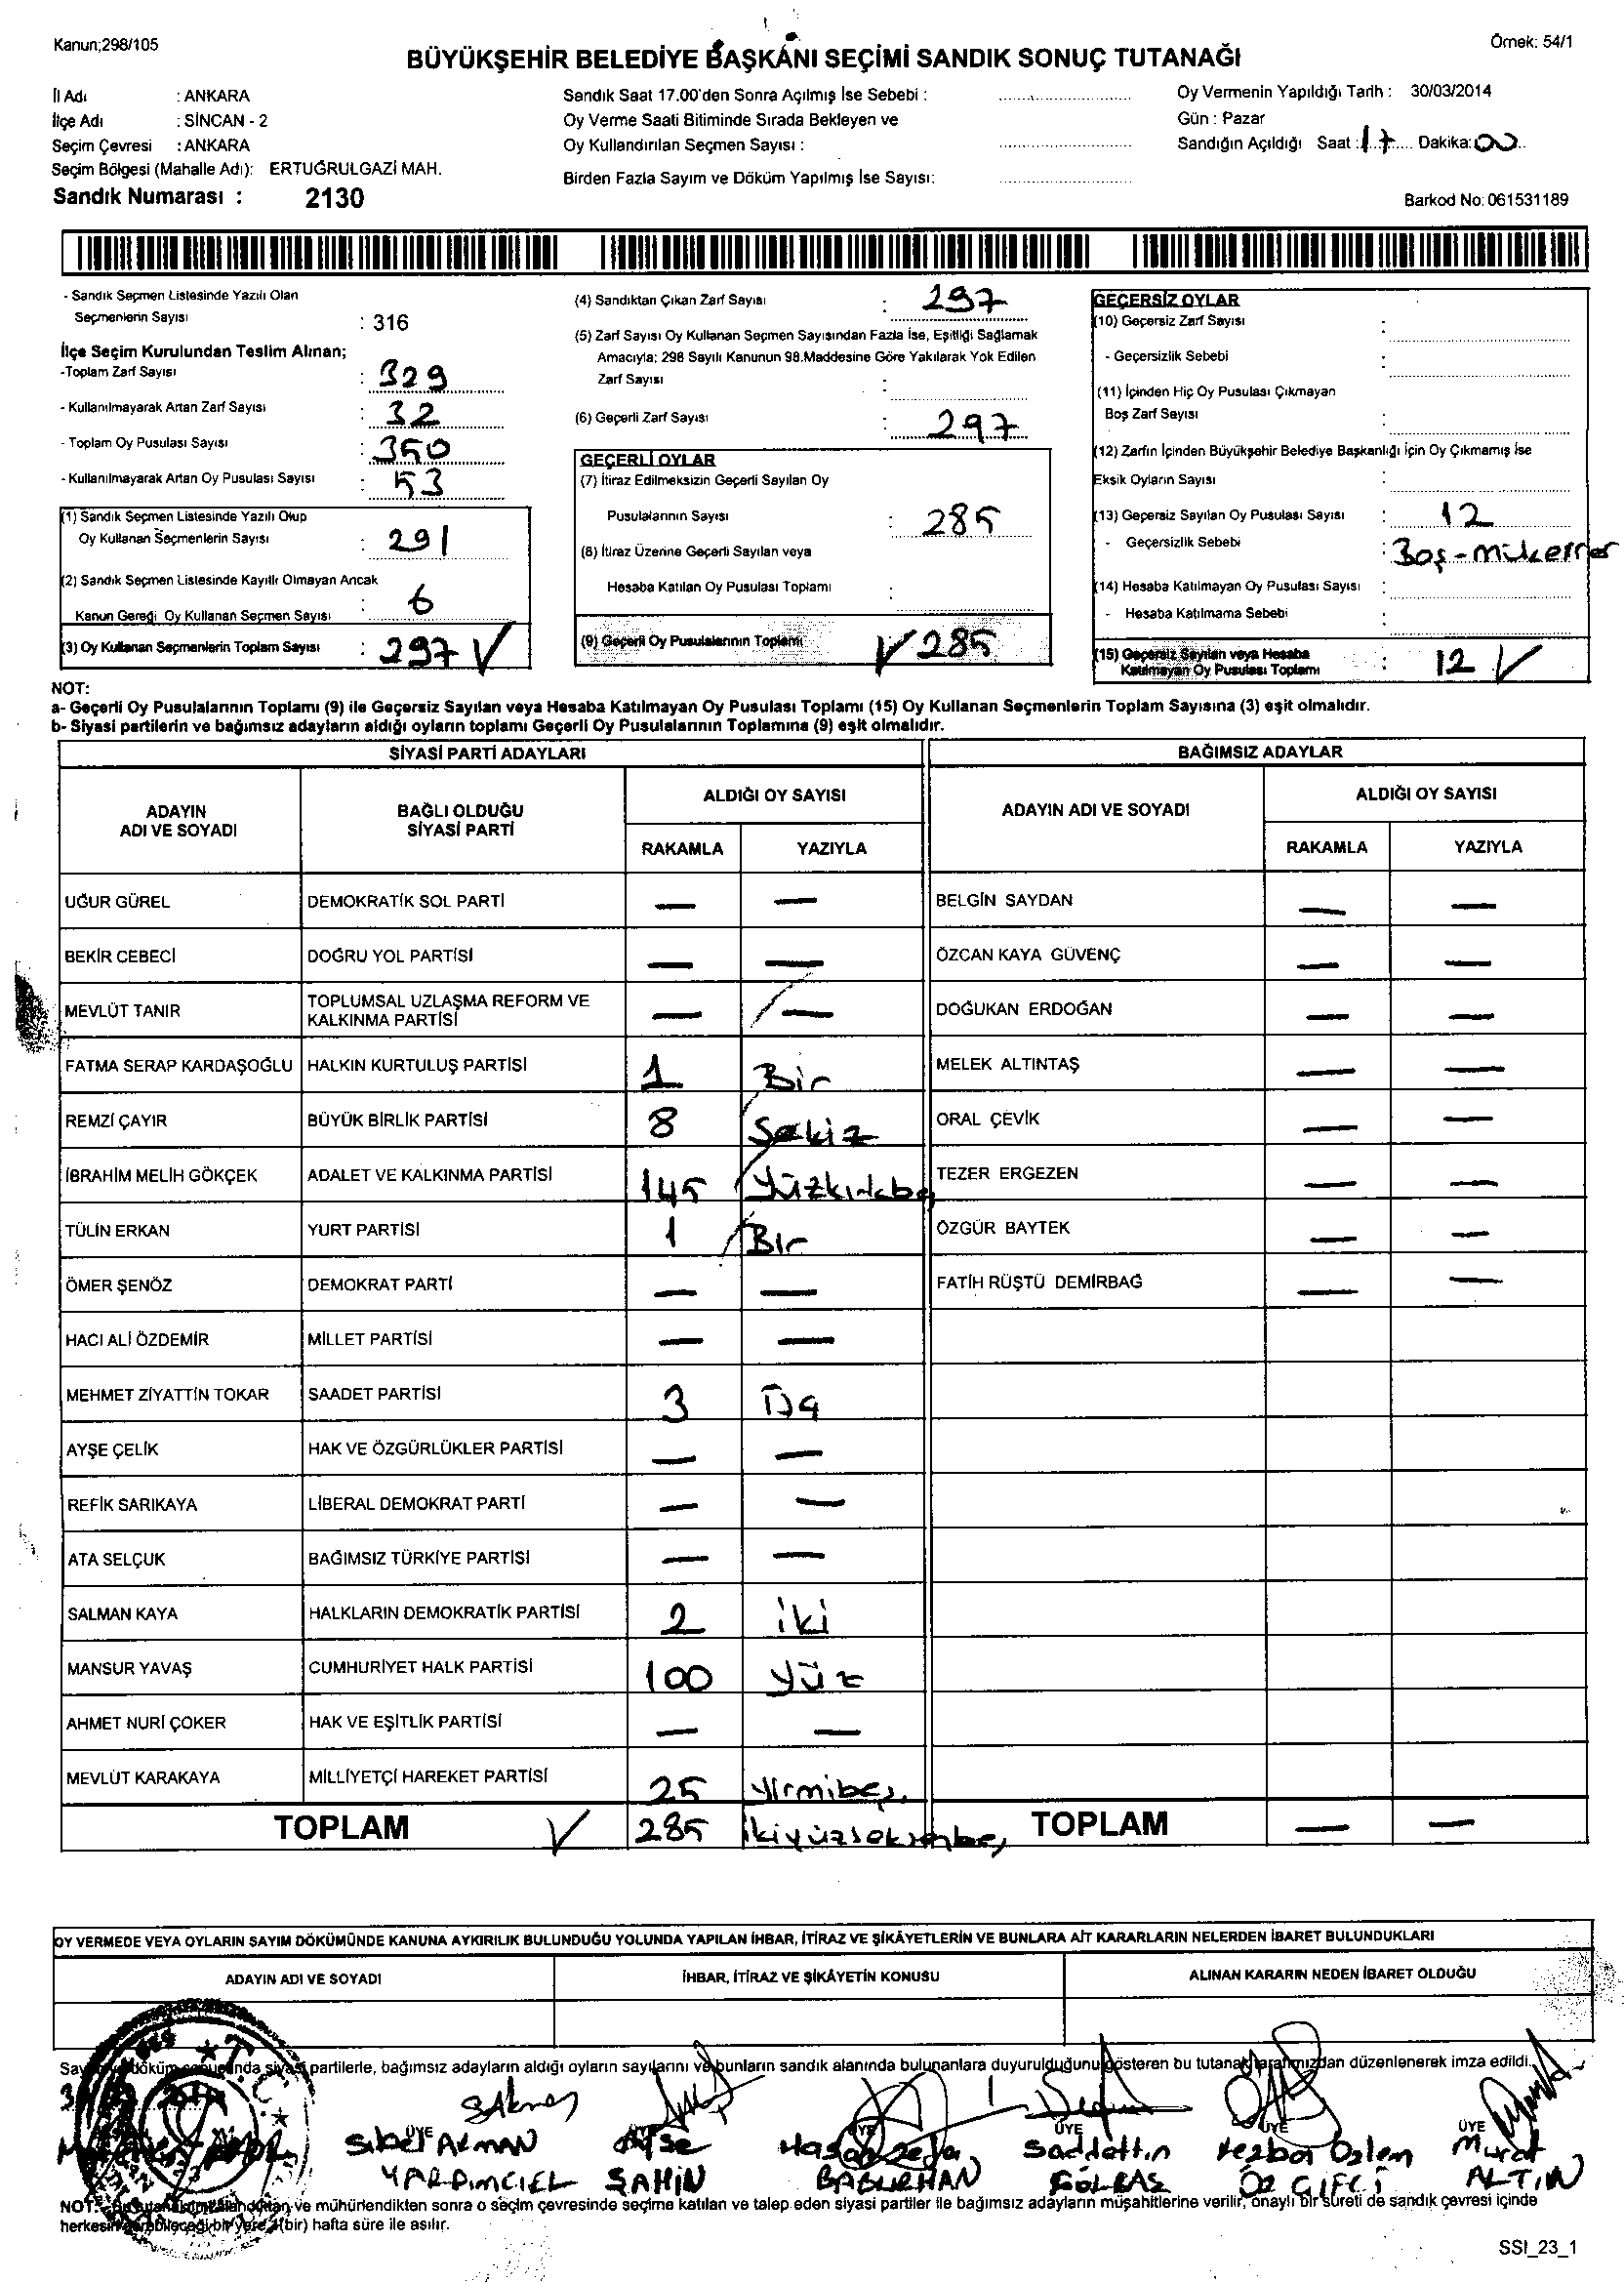 Kanun;298/105
Örnek: 54/1
BÜYÜKŞEHİR BELEDİYE BAŞKANI SEÇİMİ SANDIK SONUÇ TUTANAĞI
İl Adı : ANKARA
İlçe Adı : SİNCAN - 2
Seçim Çevresi : ANKARA
Seçim Bölgesi (Mahalle Adı): ERTUĞRULGAZİ MAH.
Sandık Numarası : 2130
Sandık Saat 17.00'den Sonra Açılmış İse Sebebi :
Oy Verme Saati Bitiminde Sırada Bekleyen ve
Oy Kullandırılan Seçmen Sayısı :
Birden Fazla Sayım ve Döküm Yapılmış İse Sayısı:
Oy Vermenin Yapıldığı Tarih : 30/03/2014
Gün : Pazar
Sandığın Açıldığı Saat : 17 Dakika: 00
Barkod No: 061531189
- Sandık Seçmen Listesinde Yazılı Olan
Seçmenlerin Sayısı : 316
İlçe Seçim Kurulundan Teslim Alınan;
-Toplam Zarf Sayısı : 329
- Kullanılmayarak Artan Zarf Sayısı : 32
- Toplam Oy Pusulası Sayısı : 350
- Kullanılmayarak Artan Oy Pusulası Sayısı : 53
(1) Sandık Seçmen Listesinde Yazılı Olup
Oy Kullanan Seçmenlerin Sayısı : 291
(2) Sandık Seçmen Listesinde Kayıtlı Olmayan Ancak
Kanun Gereği Oy Kullanan Seçmen Sayısı : 6
(3) Oy Kullanan Seçmenlerin Toplam Sayısı : 297 ✓
(4) Sandıktan Çıkan Zarf Sayısı : 297
(5) Zarf Sayısı Oy Kullanan Seçmen Sayısından Fazla İse, Eşitliği Sağlamak
Amacıyla; 298 Sayılı Kanunun 98.Maddesine Göre Yakılarak Yok Edilen
Zarf Sayısı :
(6) Geçerli Zarf Sayısı : 297
GEÇERLİ OYLAR
(7) İtiraz Edilmeksizin Geçerli Sayılan Oy
Pusulalarının Sayısı : 285
(8) İtiraz Üzerine Geçerli Sayılan veya
Hesaba Katılan Oy Pusulası Toplamı :
(9) Geçerli Oy Pusulalarının Toplamı ✓ 285
GEÇERSİZ OYLAR
(10) Geçersiz Zarf Sayısı :
- Geçersizlik Sebebi :
(11) İçinden Hiç Oy Pusulası Çıkmayan
Boş Zarf Sayısı :
(12) Zarfın İçinden Büyükşehir Belediye Başkanlığı İçin Oy Çıkmamış İse
Eksik Oyların Sayısı :
(13) Geçersiz Sayılan Oy Pusulası Sayısı : 12
- Geçersizlik Sebebi : Boş-mükerrer
(14) Hesaba Katılmayan Oy Pusulası Sayısı :
- Hesaba Katılmama Sebebi :
(15) Geçersiz Sayılan veya Hesaba
Katılmayan Oy Pusulası Toplamı : 12 ✓
NOT:
a- Geçerli Oy Pusulalarının Toplamı (9) ile Geçersiz Sayılan veya Hesaba Katılmayan Oy Pusulası Toplamı (15) Oy Kullanan Seçmenlerin Toplam Sayısına (3) eşit olmalıdır.
b- Siyasi partilerin ve bağımsız adayların aldığı oyların toplamı Geçerli Oy Pusulalarının Toplamına (9) eşit olmalıdır.
SİYASİ PARTİ ADAYLARI
ADAYIN ADI VE SOYADI
BAĞLI OLDUĞU SİYASİ PARTİ
ALDIĞI OY SAYISI
RAKAMLA YAZIYLA
UĞUR GÜREL DEMOKRATİK SOL PARTİ — —
BEKİR CEBECİ DOĞRU YOL PARTİSİ — —
MEVLÜT TANIR TOPLUMSAL UZLAŞMA REFORM VE KALKINMA PARTİSİ — —
FATMA SERAP KARDAŞOĞLU HALKIN KURTULUŞ PARTİSİ 1 Bir
REMZİ ÇAYIR BÜYÜK BİRLİK PARTİSİ 8 Sekiz
İBRAHİM MELİH GÖKÇEK ADALET VE KALKINMA PARTİSİ 145 Yüzkırkbeş
TÜLİN ERKAN YURT PARTİSİ 1 Bir
ÖMER ŞENÖZ DEMOKRAT PARTİ — —
HACI ALİ ÖZDEMİR MİLLET PARTİSİ — —
MEHMET ZİYATTİN TOKAR SAADET PARTİSİ 3 Üç
AYŞE ÇELİK HAK VE ÖZGÜRLÜKLER PARTİSİ — —
REFİK SARIKAYA LİBERAL DEMOKRAT PARTİ — —
ATA SELÇUK BAĞIMSIZ TÜRKİYE PARTİSİ — —
SALMAN KAYA HALKLARIN DEMOKRATİK PARTİSİ 2 iki
MANSUR YAVAŞ CUMHURİYET HALK PARTİSİ 100 yüz
AHMET NURİ ÇOKER HAK VE EŞİTLİK PARTİSİ — —
MEVLÜT KARAKAYA MİLLİYETÇİ HAREKET PARTİSİ 25 Yirmibeş
TOPLAM ✓ 285 İkiyüzseksenbeş
BAĞIMSIZ ADAYLAR
ADAYIN ADI VE SOYADI
ALDIĞI OY SAYISI
RAKAMLA YAZIYLA
BELGİN SAYDAN — —
ÖZCAN KAYA GÜVENÇ — —
DOĞUKAN ERDOĞAN — —
MELEK ALTINTAŞ — —
ORAL ÇEVİK — —
TEZER ERGEZEN — —
ÖZGÜR BAYTEK — —
FATİH RÜŞTÜ DEMİRBAĞ — —
TOPLAM — —
OY VERMEDE VEYA OYLARIN SAYIM DÖKÜMÜNDE KANUNA AYKIRILIK BULUNDUĞU YOLUNDA YAPILAN İHBAR, İTİRAZ VE ŞİKÂYETLERİN VE BUNLARA AİT KARARLARIN NELERDEN İBARET BULUNDUKLARI
ADAYIN ADI VE SOYADI İHBAR, İTİRAZ VE ŞİKÂYETİN KONUSU ALINAN KARARIN NEDEN İBARET OLDUĞU
döküm sonucunda siyasi partilerle, bağımsız adayların aldığı oyların sayılarını ve bunların sandık alanında bulunanlara duyurulduğunu gösteren bu tutanak tarafımızdan düzenlenerek imza edildi.
ÜYE ÜYE ÜYE ÜYE ÜYE ÜYE
Sibel AKMAN Ayşe Hasan Saddettin Özlem Murat
YARDIMCIEL ŞAHİN BABURHAN GÖLBAŞ ÖZ ÇİFÇİ ALTIN
NOT: ve mühürlendikten sonra o seçim çevresinde seçime katılan ve talep eden siyasi partiler ile bağımsız adayların müşahitlerine verilir, onaylı bir sureti de sandık çevresi içinde
herkesin görebileceği bir yere 1(bir) hafta süre ile asılır.
SSI_23_1